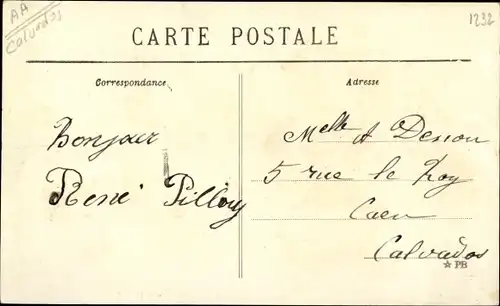 AA
Calvados
1232
CARTE POSTALE
Correspondance
Adresse
Bonjour
René Pilloy
Melle A Desson
5 rue le Roy
Caen
Calvados
PB